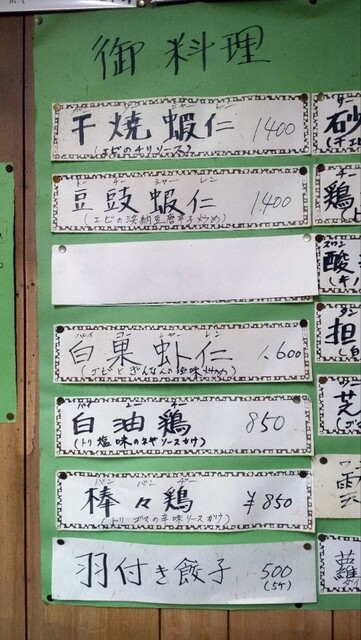 御料理
干焼蝦仁 1400
(エビのチリソース)
トー チー シャー レン
豆豉蝦仁 1400
(エビの浜納豆唐辛子炒め)
白菓虾仁 1600
(エビとぎんなんの塩味炒め)
白油鶏 850
(トリ塩味のネギソースかけ)
バン バン ヂー
棒々鶏 ¥850
(トリ ゴマの辛味ソースがけ)
羽付き餃子 500
(5ケ)
砂
鶏
スワン
酸
担
芝
雲
蘿